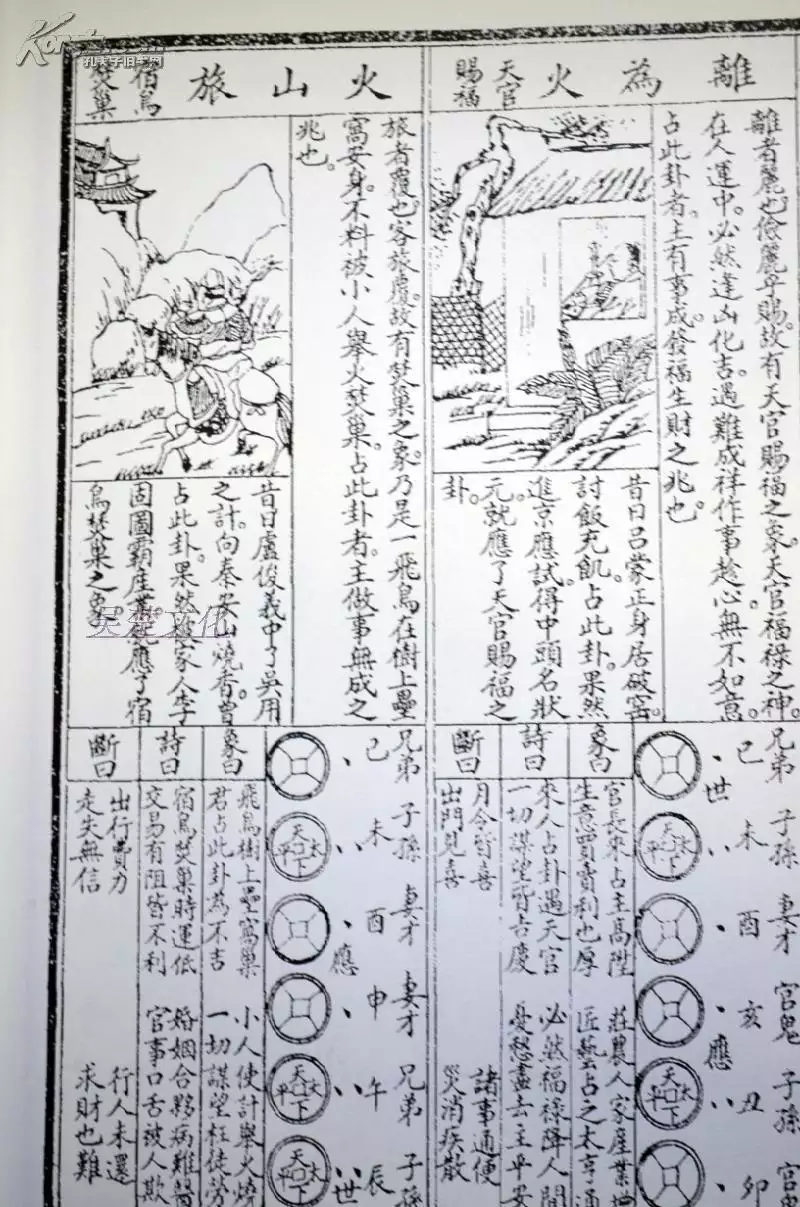 孔夫子旧书网
離為火
天官
賜福
離者麗也儉麗乎賜。故有天官賜福之象。天官福祿之神。
在人運中。必然逢凶化吉。遇難成祥作事趁心。無不如意。
占此卦者。主有事成。發福生財之兆也。
昔日呂蒙正身居破窑。
討飯充飢。占此卦。果然
進京應試。得中頭名狀
元。就應了天官賜福之
卦。
兄弟 子孫 妻才 官鬼 子孫 官鬼
己、世 未 酉、 亥、應 丑 卯
天下太平
天下太平
象曰
官長來占主高陞 莊農人家產業
生意買賣利也厚 匠藝占之太亨通
詩曰
來人占卦遇天官 必然福祿降人間
一切謀望皆吉慶 憂愁盡去主平安
斷曰
月令皆喜 諸事通便
出門見喜 災消疾散
火山旅
宿鳥
焚巢
旅者覆也。客旅覆。故有焚巢之象。乃是一飛鳥在樹上壘
窩安身。不料被小人舉火焚巢。占此卦者。主做事無成之
兆也。
昔日盧俊義中了吳用
之計。向泰安山燒香。曾
占此卦。果然被家人李
固圖霸產業。就應了宿
鳥焚巢之象。
天楚文化
兄弟 子孫 妻才 妻才 兄弟 子孫
己、 未 酉、應 申、 午 辰世
天下太平
天下太平
天下太平
象曰
飛鳥樹上壘窩巢 小人使計舉火燒
君占此卦為不吉 一切謀望枉徒勞
詩曰
宿鳥焚巢時運低 婚姻合夥病難醫
交易有阻皆不利 官事口舌被人欺
斷曰
出行費力 行人未還
走失無信 求財也難